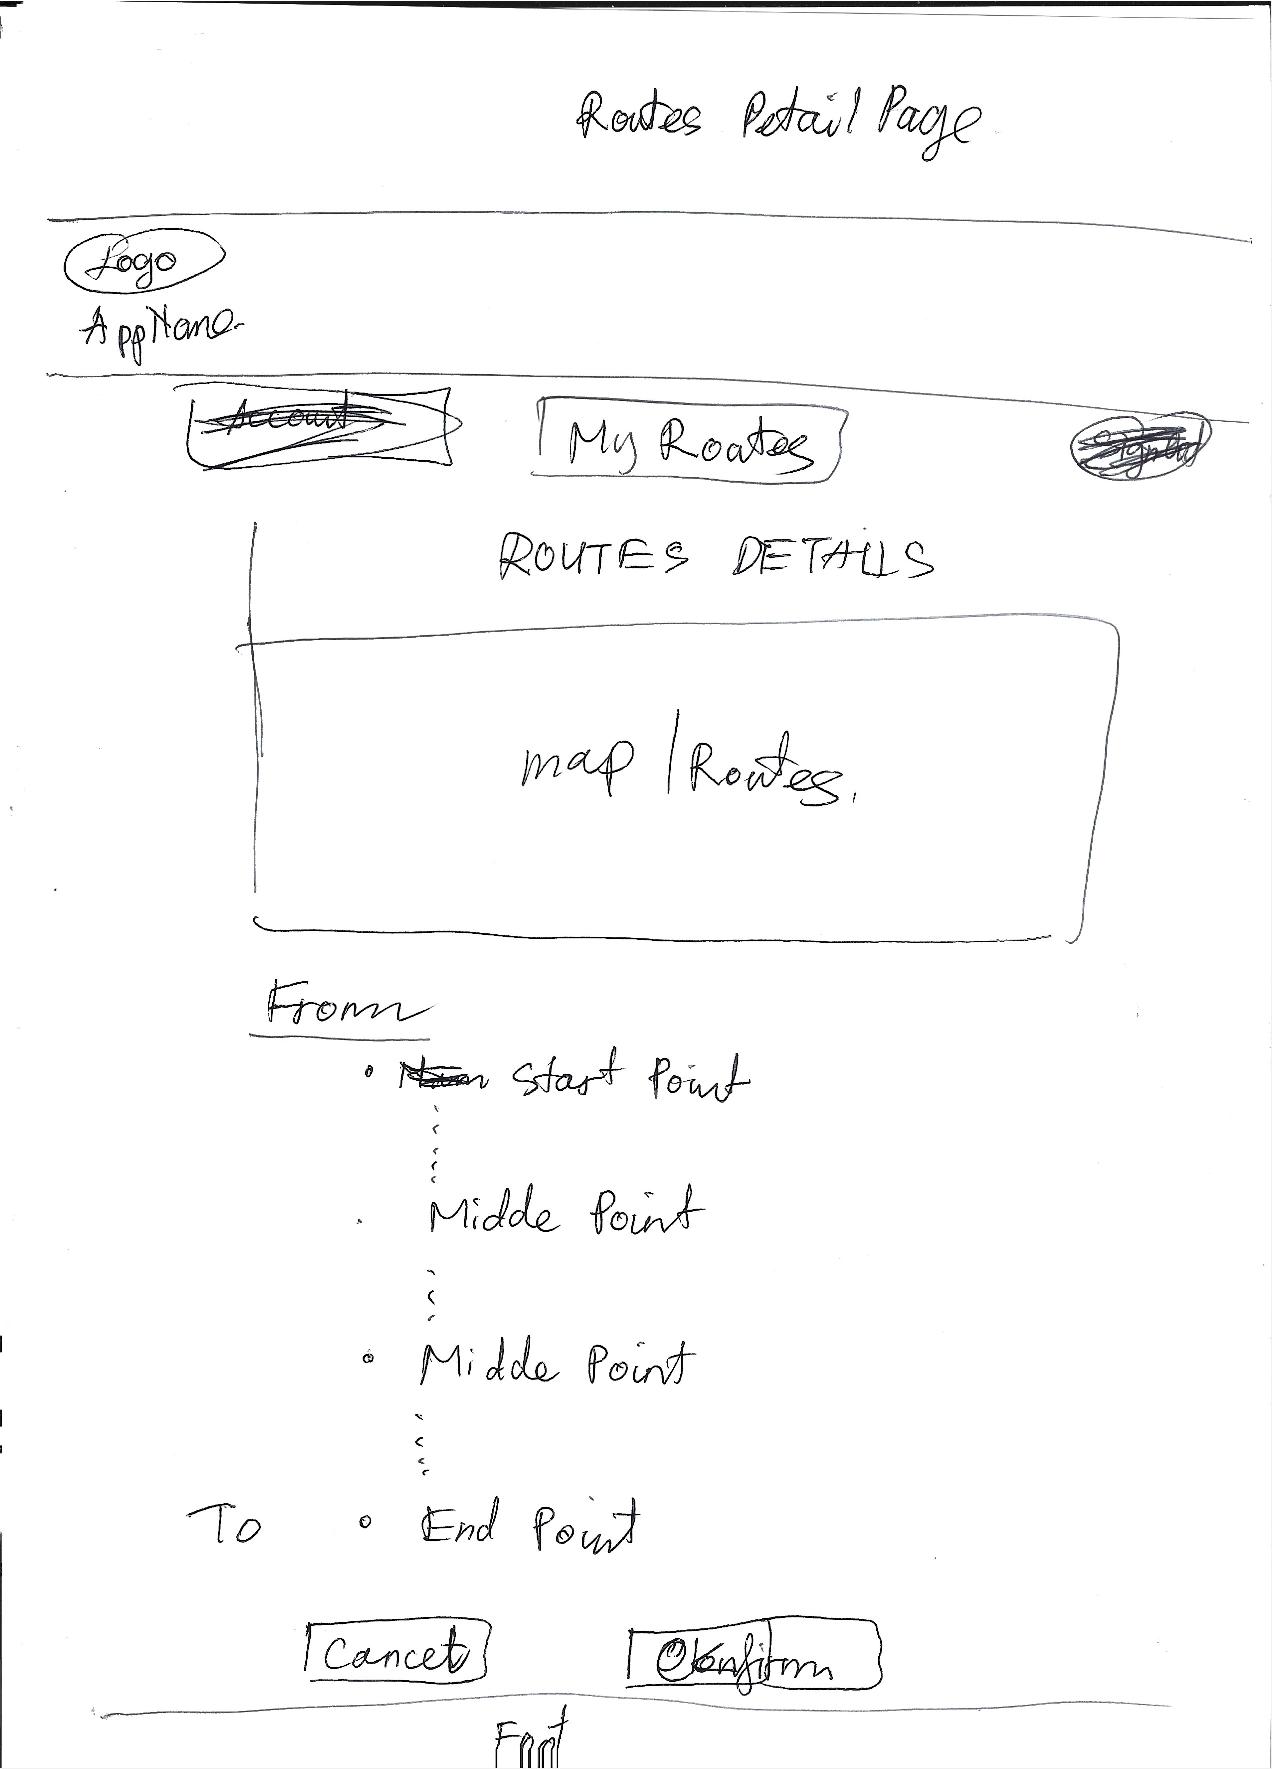 Routes Detail Page
Logo
AppName
Account
My Routes
SignOut
ROUTES DETAILS
map / Routes.
From
Start Point
Midde Point
Midde Point
To • End Point
Cancel
Confirm
Foot